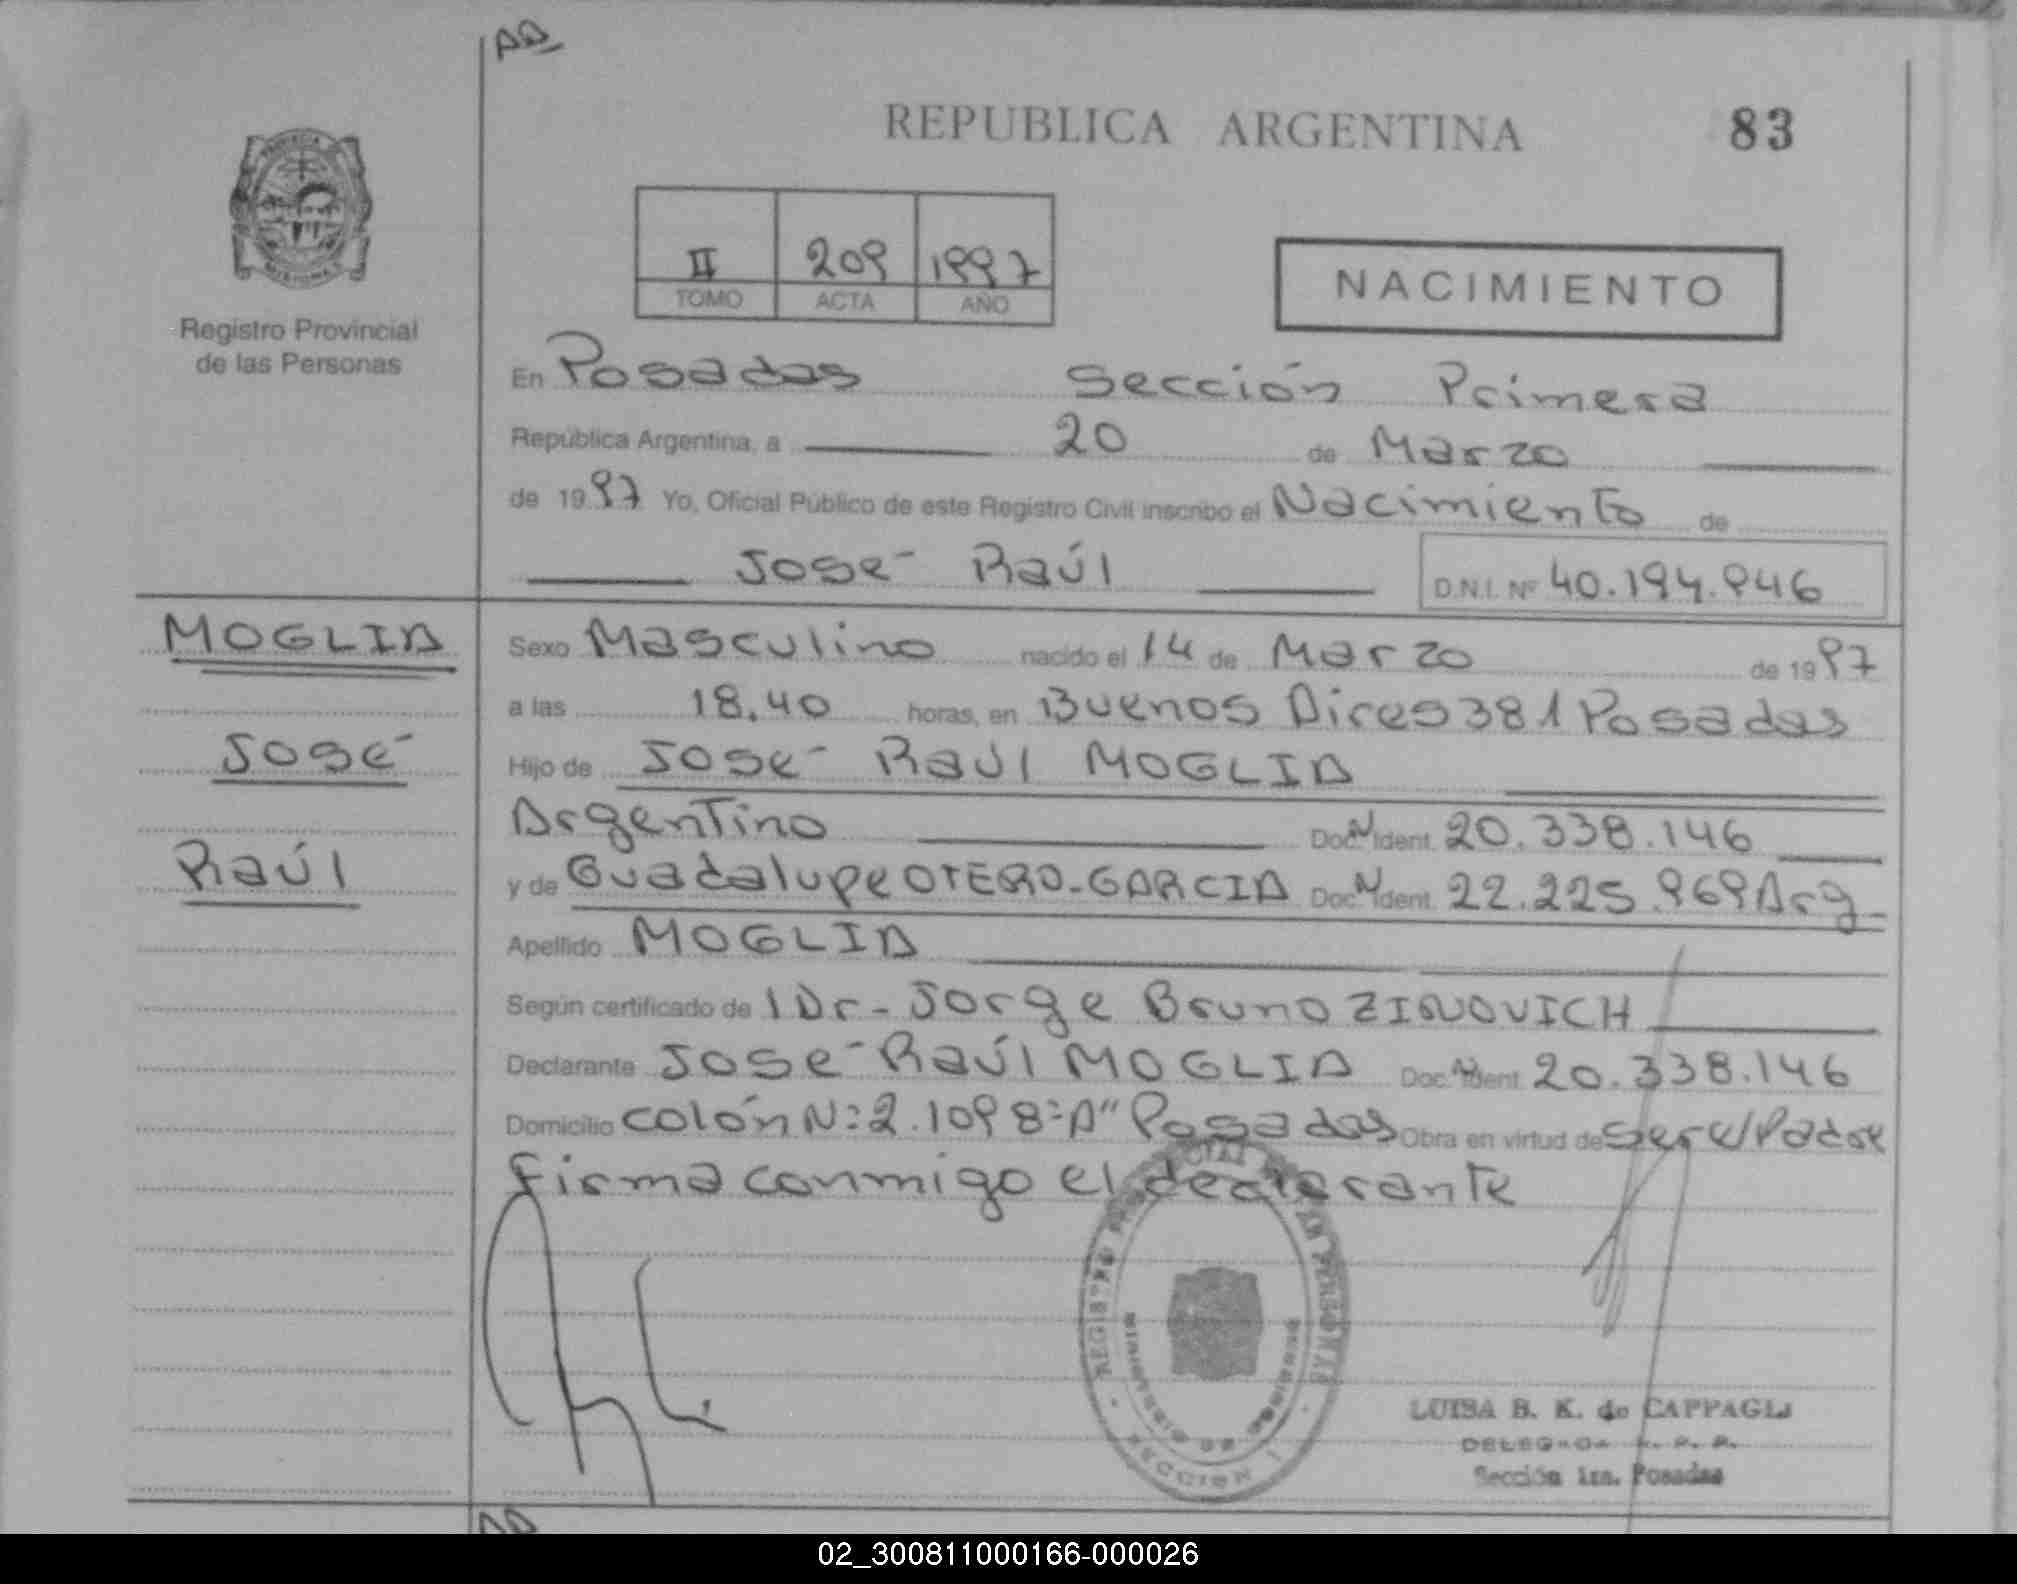 REPUBLICA ARGENTINA 83
II 209 1997
TOMO ACTA AÑO
NACIMIENTO
Registro Provincial
de las Personas
En Posadas Sección Primera
República Argentina, a 20 de Marzo
de 1997 Yo, Oficial Público de este Registro Civil inscribo el Nacimiento de
José Raúl D.N.I. Nº 40.194.946
MOGLIA
José
Raúl
Sexo Masculino nacido el 14 de Marzo de 1997
a las 18,40 horas, en Buenos Aires 381 Posadas
Hijo de José Raúl MOGLIA
Argentino Doc. N Ident. 20.338.146
y de Guadalupe OTERO-GARCIA Doc. N Ident. 22.225.969 Arg.
Apellido MOGLIA
Según certificado de l Dr. Jorge Bruno ZINOVICH
Declarante José Raúl MOGLIA Doc. N Ident. 20.338.146
Domicilio Colón N: 2.109 8º A" Posadas Obra en virtud de Ser el Padre
Firma conmigo el declarante
REGISTRO DE LAS PERSONAS
MINISTERIO DE GOBIERNO
SECCION 1
LUISA B. K. de CAPPAGLI
DELEGADA R. P. P.
Sección 1ra. Posadas
02_300811000166-000026